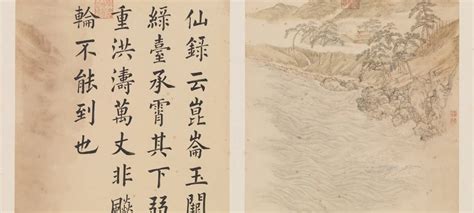 仙錄云崑崙玉闕
綠臺承霄其下弱
重洪濤萬丈非飈
輪不能到也